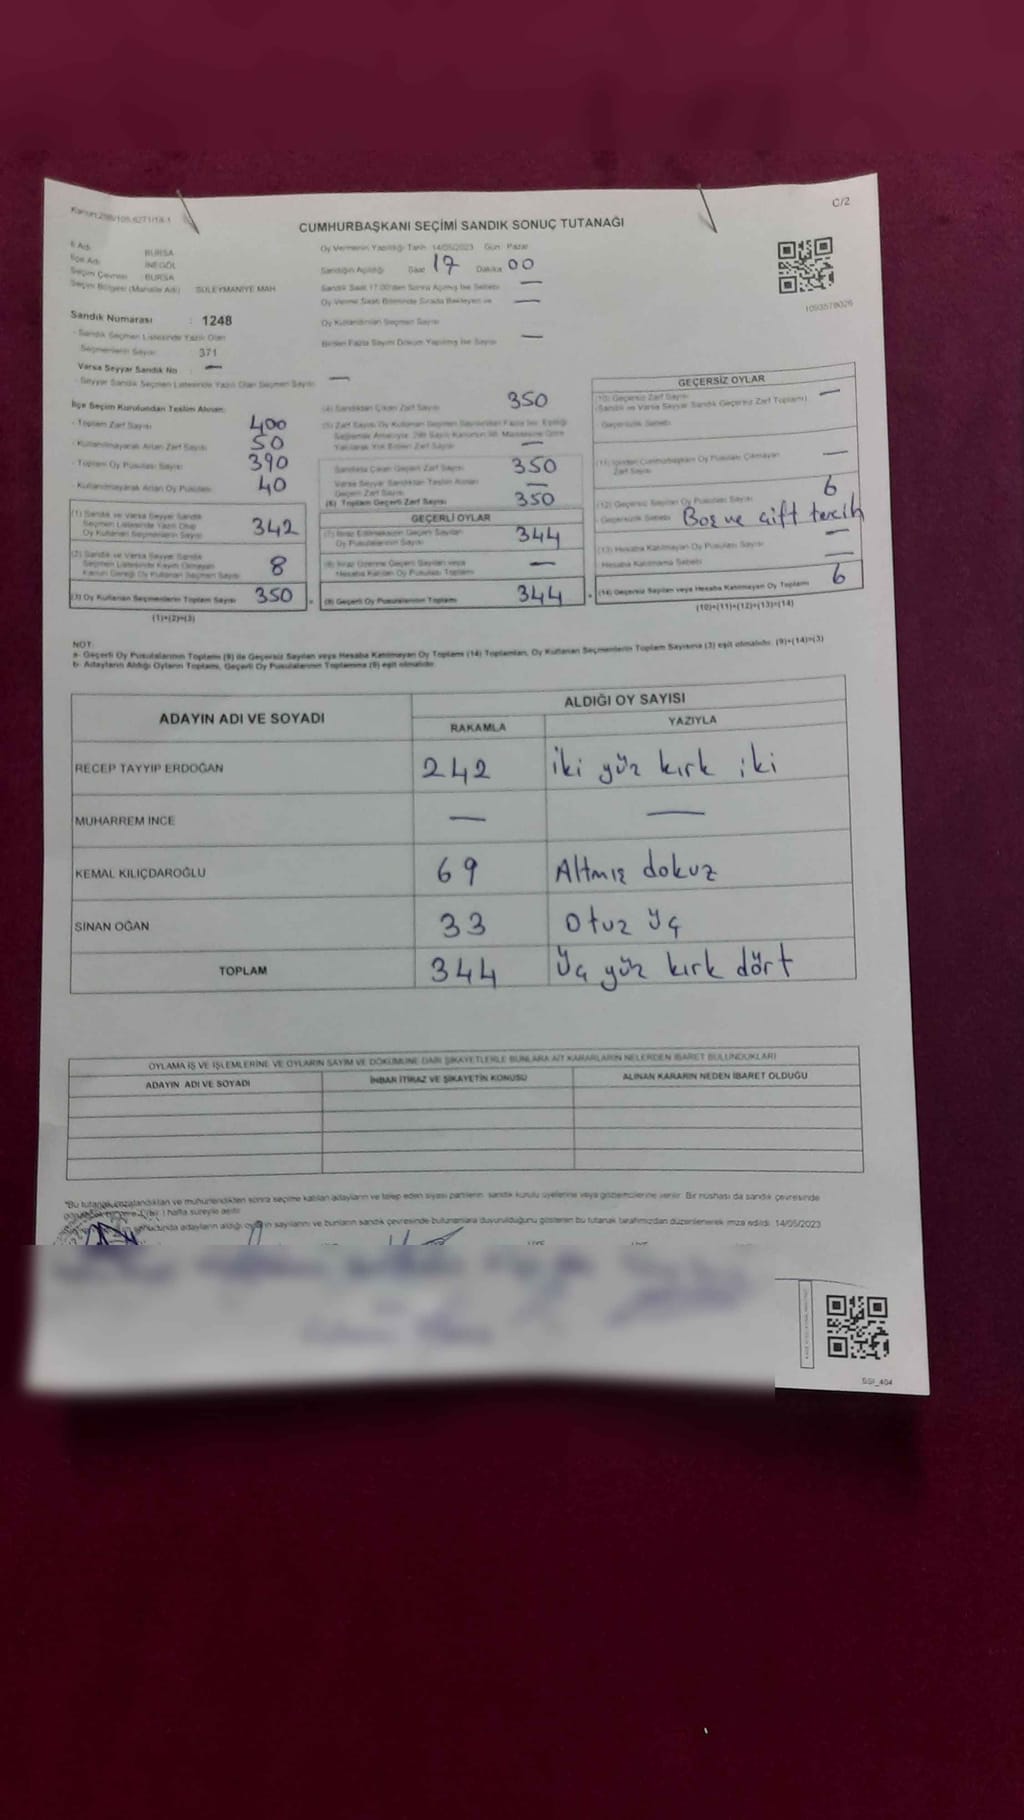 Kanun:298/105-6271/18-1
C/2
CUMHURBAŞKANI SEÇİMİ SANDIK SONUÇ TUTANAĞI
İl Adı BURSA
İlçe Adı İNEGÖL
Seçim Çevresi BURSA
Seçim Bölgesi (Mahalle Adı) SÜLEYMANİYE MAH
Sandık Numarası : 1248
- Sandık Seçmen Listesinde Yazılı Olan
Seçmenlerin Sayısı 371
Varsa Seyyar Sandık No : —
- Seyyar Sandık Seçmen Listesinde Yazılı Olan Seçmen Sayısı —
Oy Vermenin Yapıldığı Tarih 14/05/2023 Gün : Pazar
Sandığın Açıldığı Saat 17 Dakika 00
Sandık Saat 17.00'den Sonra Açılmış İse Sebebi —
Oy Verme Saati Bitiminde Sırada Bekleyen ve —
Oy Kullandırılan Seçmen Sayısı
Birden Fazla Sayım Döküm Yapılmış İse Sayısı —
1093578026
İlçe Seçim Kurulundan Teslim Alınan:
- Toplam Zarf Sayısı 400
- Kullanılmayarak Artan Zarf Sayısı 50
- Toplam Oy Pusulası Sayısı 390
- Kullanılmayarak Artan Oy Pusulası 40
(1) Sandık ve Varsa Seyyar Sandık
Seçmen Listesinde Yazılı Olup
Oy Kullanan Seçmenlerin Sayısı 342
(2) Sandık ve Varsa Seyyar Sandık
Seçmen Listesinde Kayıtlı Olmayan
Kanun Gereği Oy Kullanan Seçmen Sayısı 8
(3) Oy Kullanan Seçmenlerin Toplam Sayısı 350
(1)+(2)=(3)
(4) Sandıktan Çıkan Zarf Sayısı 350
(5) Zarf Sayısı Oy Kullanan Seçmen Sayısından Fazla İse, Eşitliği
Sağlamak Amacıyla, 298 Sayılı Kanunun 98. Maddesine Göre
Yakılarak Yok Edilen Zarf Sayısı —
Sandıkta Çıkan Geçerli Zarf Sayısı 350
Varsa Seyyar Sandıktan Teslim Alınan
Geçerli Zarf Sayısı —
(6) Toplam Geçerli Zarf Sayısı 350
GEÇERLİ OYLAR
(7) İtiraz Edilmeksizin Geçerli Sayılan
Oy Pusulalarının Sayısı 344
(8) İtiraz Üzerine Geçerli Sayılan veya
Hesaba Katılan Oy Pusulası Toplamı —
(9) Geçerli Oy Pusulalarının Toplamı 344
GEÇERSİZ OYLAR
(10) Geçersiz Zarf Sayısı —
(Sandık ve Varsa Seyyar Sandık Geçersiz Zarf Toplamı)
Geçersizlik Sebebi
(11) İçinden Cumhurbaşkanı Oy Pusulası Çıkmayan
Zarf Sayısı —
(12) Geçersiz Sayılan Oy Pusulası Sayısı 6
- Geçersizlik Sebebi Boş ve çift tercih
(13) Hesaba Katılmayan Oy Pusulası Sayısı —
Hesaba Katılmama Sebebi —
(14) Geçersiz Sayılan veya Hesaba Katılmayan Oy Toplamı 6
(10)+(11)+(12)+(13)=(14)
NOT:
a- Geçerli Oy Pusulalarının Toplamı (9) ile Geçersiz Sayılan veya Hesaba Katılmayan Oy Toplamı (14) Toplamları, Oy Kullanan Seçmenlerin Toplam Sayısına (3) eşit olmalıdır. (9)+(14)=(3)
b- Adayların Aldığı Oyların Toplamı, Geçerli Oy Pusulalarının Toplamına (9) eşit olmalıdır.
ADAYIN ADI VE SOYADI
ALDIĞI OY SAYISI
RAKAMLA YAZIYLA
RECEP TAYYIP ERDOĞAN 242 iki yüz kırk iki
MUHARREM İNCE — —
KEMAL KILIÇDAROĞLU 69 Altmış dokuz
SİNAN OĞAN 33 Otuz üç
TOPLAM 344 Üç yüz kırk dört
OYLAMA İŞ VE İŞLEMLERİNE VE OYLARIN SAYIM VE DÖKÜMÜNE DAİR ŞİKAYETLERLE BUNLARA AİT KARARLARIN NELERDEN İBARET BULUNDUKLARI
ADAYIN ADI VE SOYADI İHBAR İTİRAZ VE ŞİKAYETİN KONUSU ALINAN KARARIN NEDEN İBARET OLDUĞU
*Bu tutanak imzalandıktan ve mühürlendikten sonra seçime katılan adayların ve talep eden siyasi partilerin sandık kurulu üyelerine veya gözlemcilerine verilir. Bir nüshası da sandık çevresinde
bir hafta süreyle asılır.
sonucunda adayların aldığı oyların sayılarını ve bunların sandık çevresinde bulunanlara duyurulduğunu gösteren bu tutanak tarafımızdan düzenlenerek imza edildi. 14/05/2023
ÜYE ÜYE
SSI_404